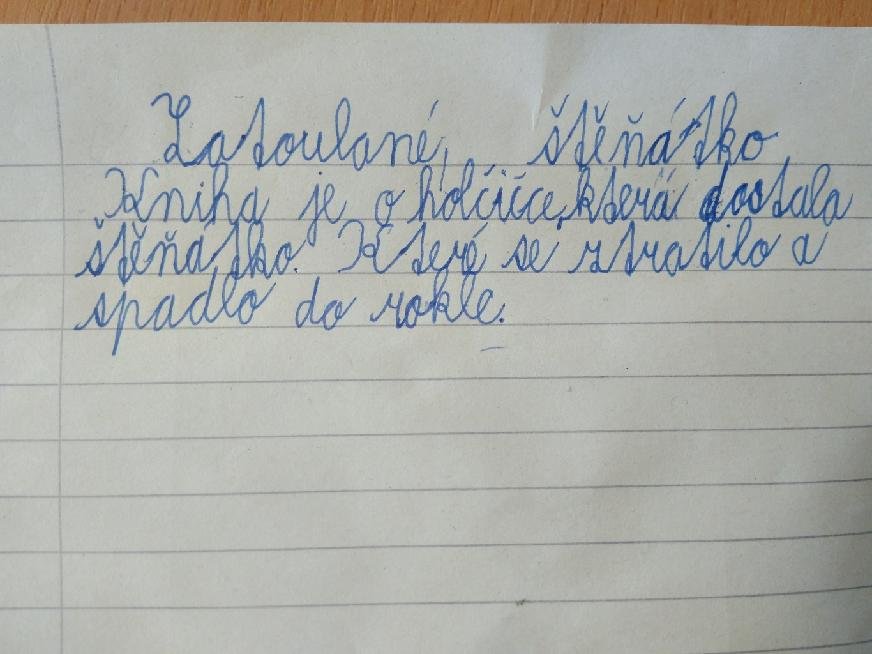 Zatoulané štěňátko
Kniha je o holčičce, která dostala
štěňátko. Které se ztratilo a
spadlo do rokle.